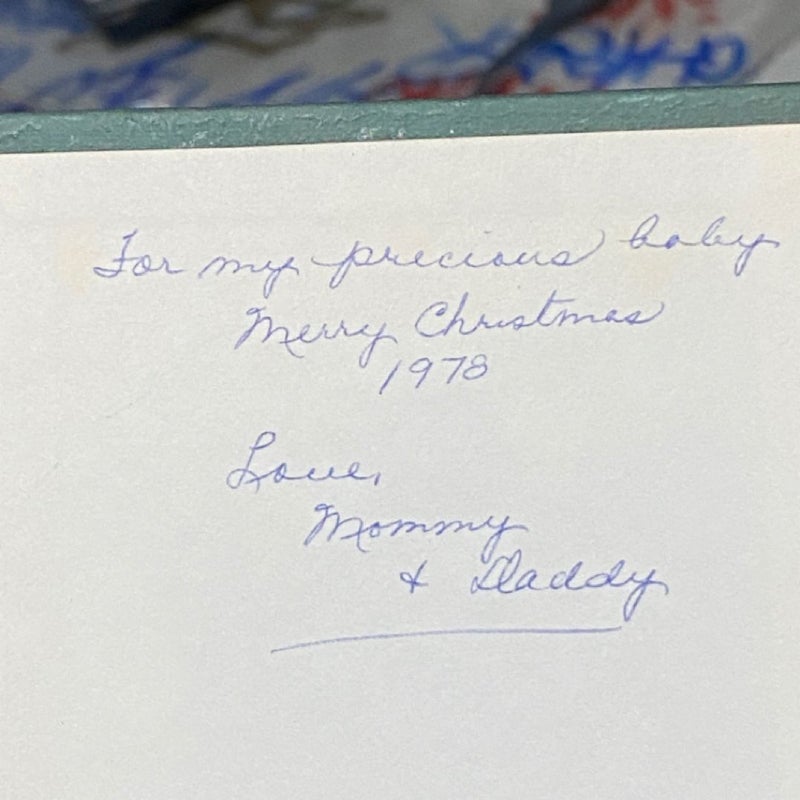 For my precious baby
Merry Christmas
1978
Love,
Mommy
& Daddy